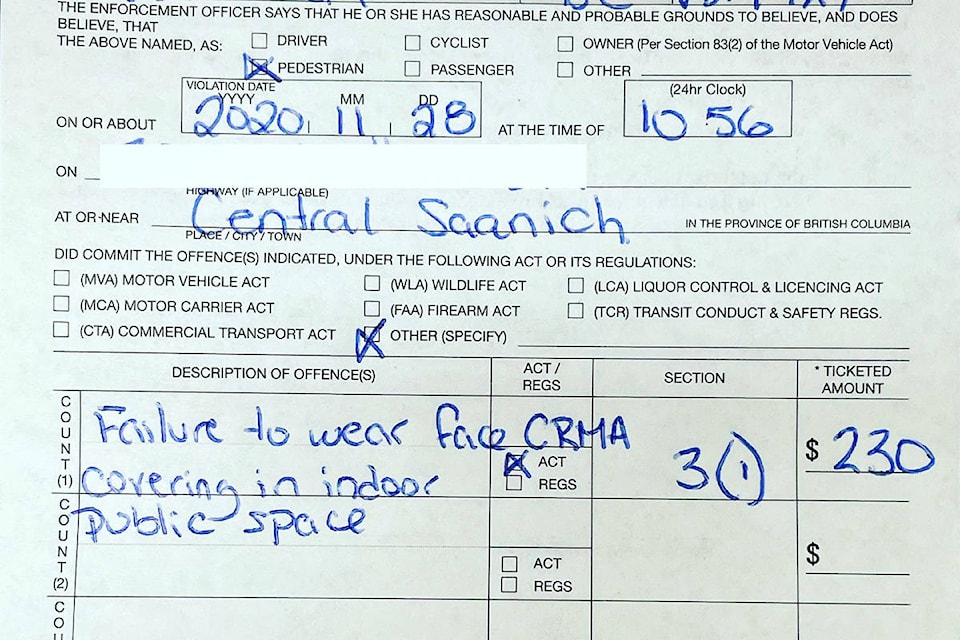 THE ENFORCEMENT OFFICER SAYS THAT HE OR SHE HAS REASONABLE AND PROBABLE GROUNDS TO BELIEVE, AND DOES
BELIEVE, THAT
THE ABOVE NAMED, AS:
DRIVER CYCLIST OWNER (Per Section 83(2) of the Motor Vehicle Act)
PEDESTRIAN PASSENGER OTHER
VIOLATION DATE (24hr Clock)
YYYY MM DD
ON OR ABOUT 2020 11 28 AT THE TIME OF 10 56
ON
HIGHWAY (IF APPLICABLE)
AT OR NEAR Central Saanich IN THE PROVINCE OF BRITISH COLUMBIA
PLACE / CITY / TOWN
DID COMMIT THE OFFENCE(S) INDICATED, UNDER THE FOLLOWING ACT OR ITS REGULATIONS:
(MVA) MOTOR VEHICLE ACT (WLA) WILDLIFE ACT (LCA) LIQUOR CONTROL & LICENCING ACT
(MCA) MOTOR CARRIER ACT (FAA) FIREARM ACT (TCR) TRANSIT CONDUCT & SAFETY REGS.
(CTA) COMMERCIAL TRANSPORT ACT OTHER (SPECIFY)
DESCRIPTION OF OFFENCE(S) ACT / REGS SECTION * TICKETED AMOUNT
COUNT (1) Failure to wear face CRMA 3(1) $ 230
covering in indoor ACT
REGS
COUNT (2) public space $
ACT
REGS
COU